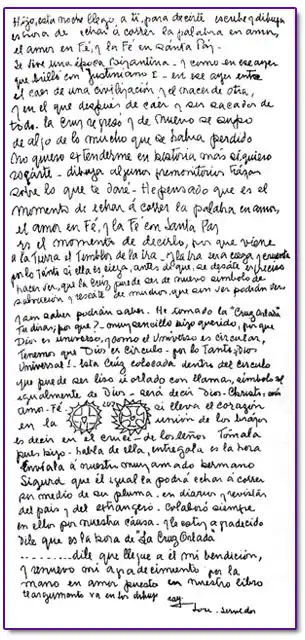 Hijo, esta noche llego a ti, para decirte escribe y dibuja
es hora de echar á correr la palabra en amor,
el amor en Fé, y la Fé en Santa Paz.
Se vive una época Bizantina - y como en ese ayer
que brilló con Justiniano I - en ese ayer entre
el caer de una civilización y el nacer de otra,
y en el que después de caer y ser sacados de
todo. la Cruz regresó y de nuevo se supo
de algo de lo mucho que se había perdido
No quiero extenderme en historia más si quiero
rogarte - dibuja algunos premonitorios
sobre lo que te daré - He pensado que es el
momento de echar á correr la palabra en amor,
el amor en Fé, y la Fé con Santa Paz
es el momento de decirlo, por que viene
a la Tierra el Temblor de la ira - y la ira será ciega y
por lo tanto si ella es ciega, antes de que, se desate es preciso
hacer ver, que la Cruz puede ser de nuevo símbolo de
salvación y rescate de muchos, que sin ver podrán ver
y sin saber podrán saber. He tomado la "Cruz Orlada"
Tu dirás; por que? - muy sencillo hijo querido, por que
Dios es universo, y como el Universo es circular,
Tenemos que Dios es Círculo - por lo tanto, Dios
Universal! - Esta Cruz colocada dentro del círculo
que puede ser liso ú orlado con llamas, símbolo
igualmente de Dios - será decir Dios - Christo, en
amor - Fé - luz si lleva el corazón
en la unión de los brazos
es decir en el cruce - de los leños Tómala
pues hijo - habla de ella, entrégala es la hora
Envíala á nuestro muy amado hermano
Sigurd que él igual la podrá echar á correr
por medio de su pluma - en diarios y revistas
del país y del extranjero - Colaboró siempre
en ellos por nuestra causa - y le estoy agradecido
Dile que es la hora de "La Cruz Orlada"
.......... dile que llegue a él mi bendición,
y renuevo mi agradecimiento por la
mano en amor puesta en nuestro libro
el argumento va en los dibujos